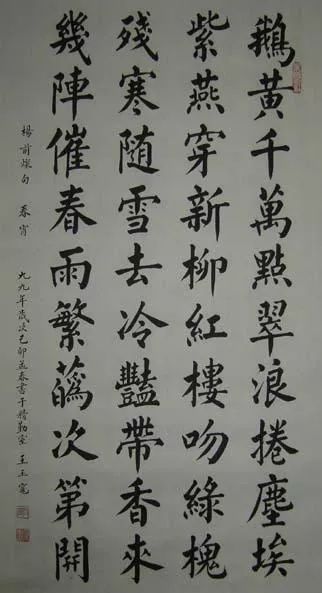 鵝黃千萬點翠浪捲塵埃
紫燕穿新柳紅樓吻綠槐
殘寒随雪去冷豔帶香來
幾陣催春雨繁蘤次第開
楊前燦句 春宵 九九年歲次己卯孟春書于精勤室 王玉寬